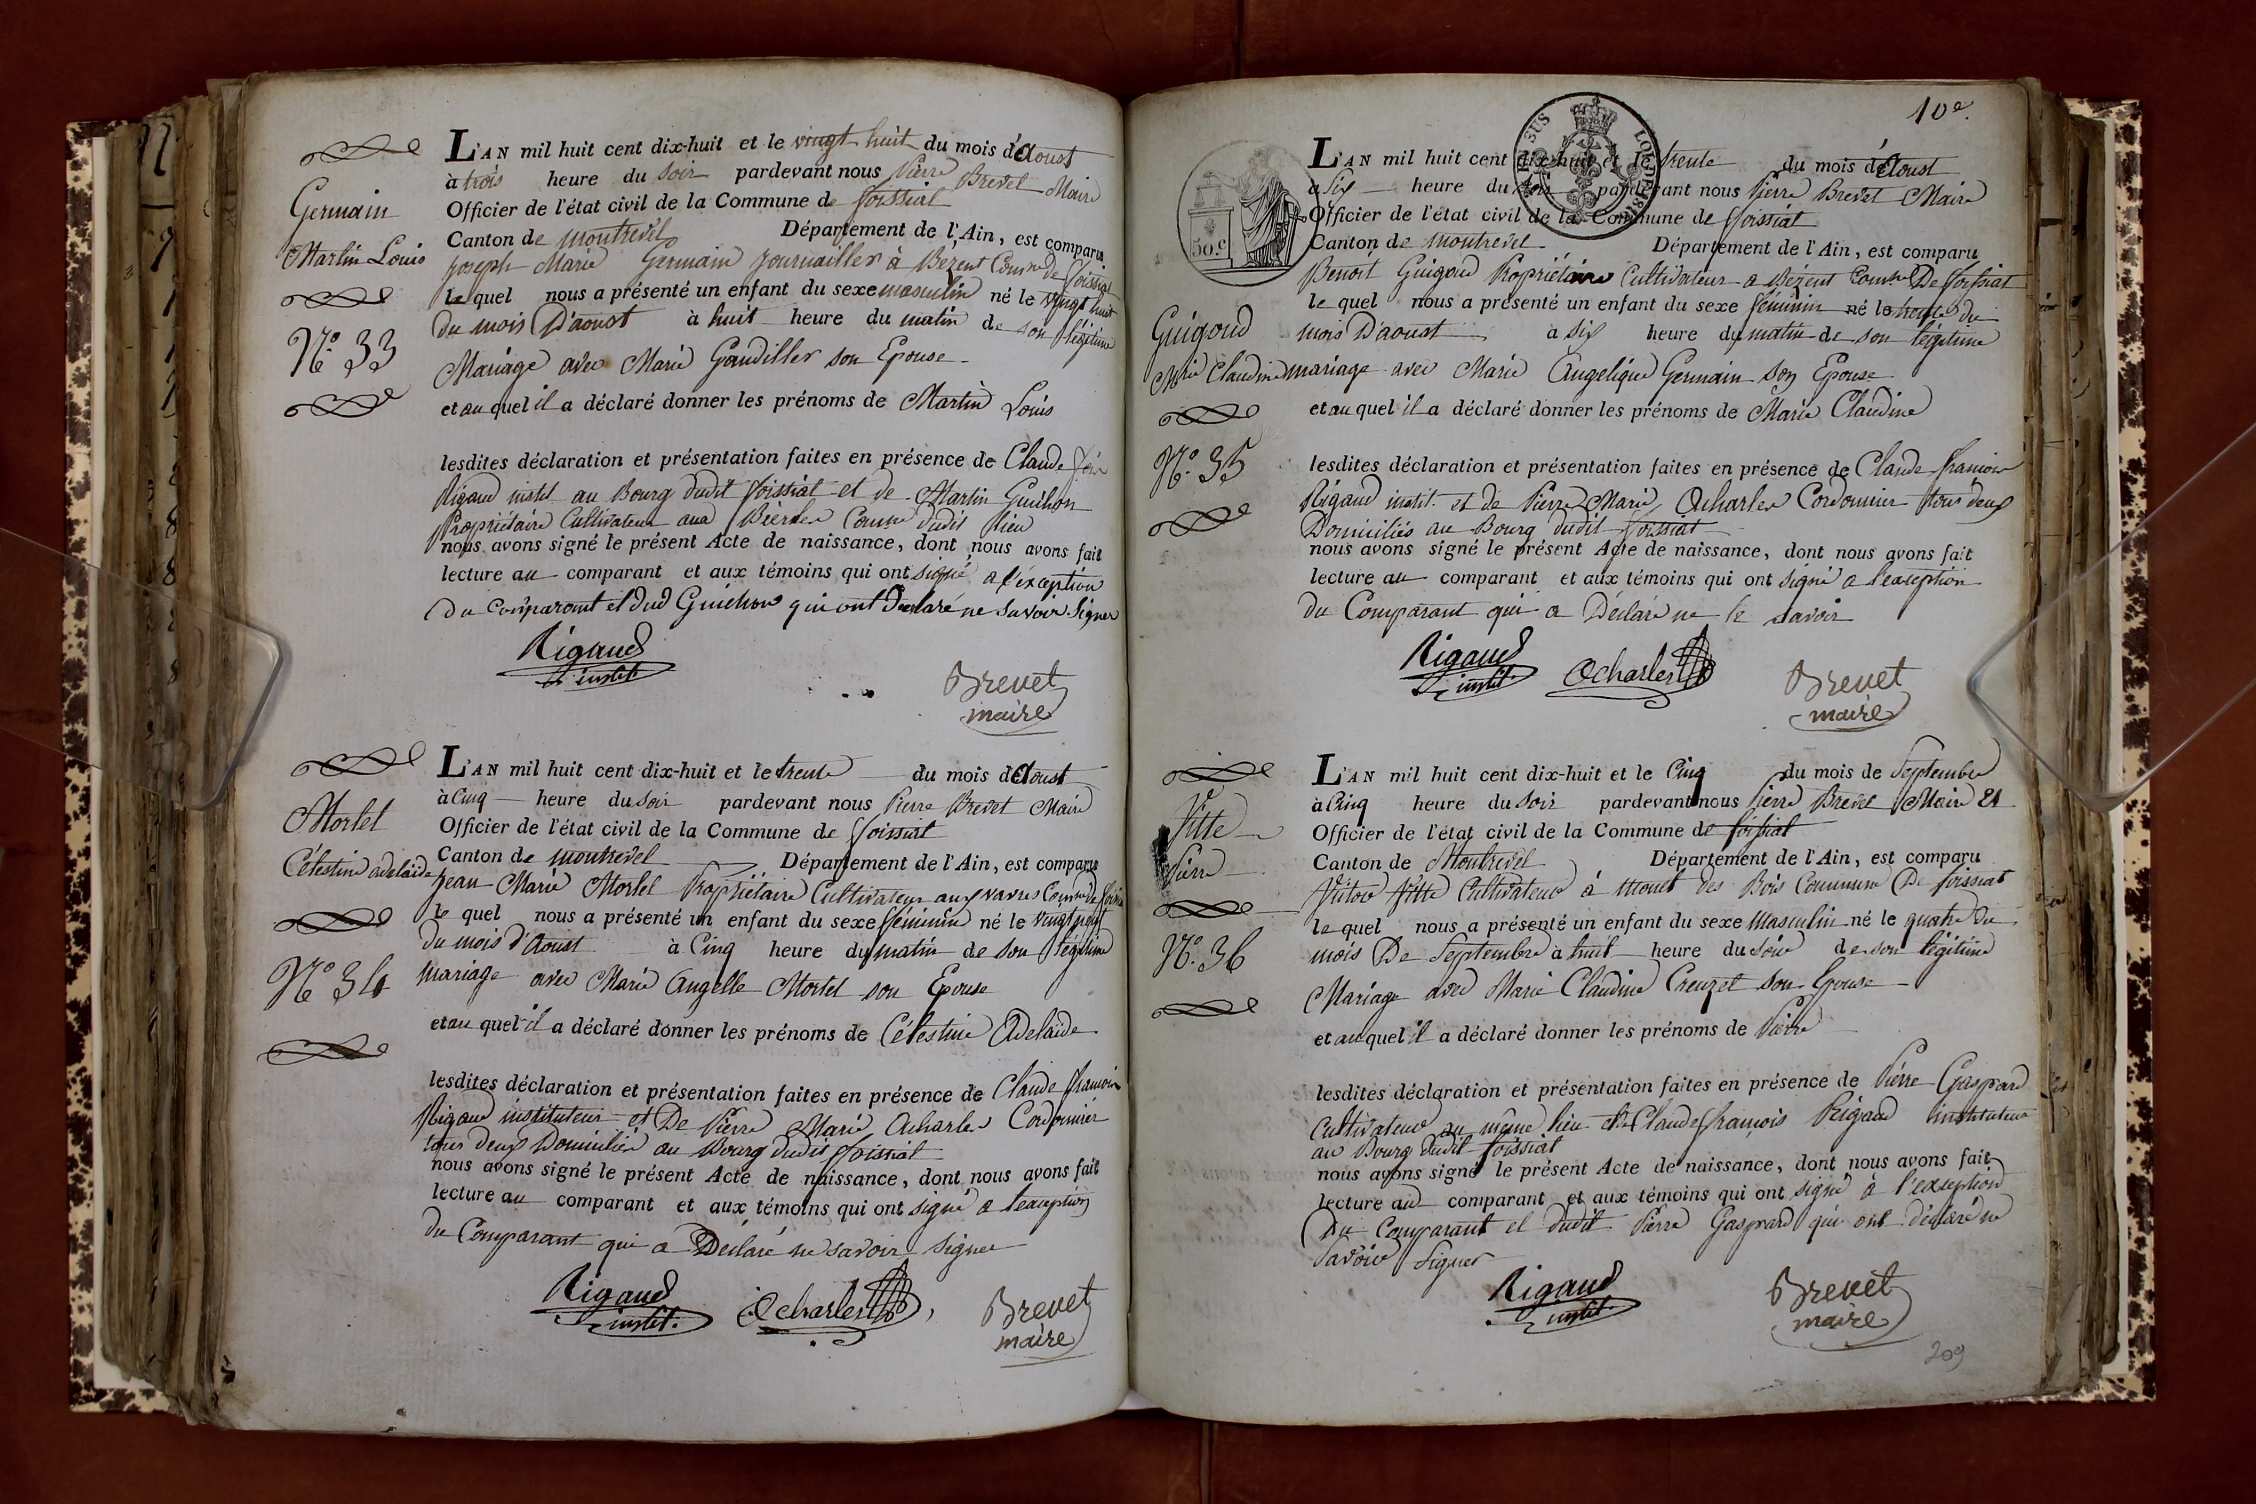 Germain
Martin Louis
N.° 33
L'AN mil huit cent dix-huit et le vingt huit du mois d'Aoust
à trois heure du soir pardevant nous Pierre Brevet Maire
Officier de l'état civil de la Commune de foissiat
Canton de montrevel Département de l'Ain, est comparu
joseph Marie Germain journaillier à Bezent Comne de foissiat
le quel nous a présenté un enfant du sexe masculin né le vingt huit
du mois D'aoust à huit heure du matin de son légitime
Mariage avec Marie Gaudiller son Epouse
et au quel il a déclaré donner les prénoms de Martin Louis
lesdites déclaration et présentation faites en présence de Claude
Rigaud instit au Bourg dudit foissiat et de Martin Guichon
Propriétaire Cultivateur aux Comne dudit lieu
nous avons signé le présent Acte de naissance, dont nous avons fait
lecture au comparant et aux témoins qui ont signé a l'exception
du comparant et dud Guichon qui ont Declaré ne savoir signer
Rigaud
instit
Brevet
maire
Morlet
Célestine adelaide
N.° 34
L'AN mil huit cent dix-huit et le trente du mois d'Aoust
à Cinq heure du soir pardevant nous Pierre Brevet Maire
Officier de l'état civil de la Commune de foissiat
Canton de montrevel Département de l'Ain, est comparu
jean Marie Morlel Propriétaire Cultivateur aux vavres Comne de
le quel nous a présenté un enfant du sexe féminin né le vingt neuf
du mois d'Aoust à Cinq heure du matin de son légitime
mariage avec Marie Angelle Morlel son Epouse
et au quel il a déclaré donner les prénoms de Célestine Adelaide
lesdites déclaration et présentation faites en présence de Claude francois
Rigaud instituteur et De Pierre Marie Acharles Cordonnier
tous deux Domiciliés au Bourg dudit foissiat
nous avons signé le présent Acte de naissance, dont nous avons fait
lecture au comparant et aux témoins qui ont signé a l'exception
du Comparant qui a Déclaré ne savoir signer
Rigaud
instit.
Acharles
Brevet
maire
10e.
50.c
Guigoud
Mrie Claudine
N.° 35
L'AN mil huit cent dix-huit et le trente du mois d'Aoust
à six heure du soir pardevant nous Pierre Brevet Maire
Officier de l'état civil de la Commune de foissiat
Canton de montrevel Département de l'Ain, est comparu
Benoit Guigoud Propriétaire Cultivateur a Bezent Comne De foissiat
le quel nous a présenté un enfant du sexe féminin né le trente du
mois D'aoust à six heure du matin de son légitime
mariage avec Marie Angelique Germain son Epouse
et au quel il a déclaré donner les prénoms de Marie Claudine
lesdites déclaration et présentation faites en présence de Claude francois
Rigaud instit. et de Pierre Marie Acharles Cordonnier tous deux
Domiciliés au Bourg dudit foissiat
nous avons signé le présent Acte de naissance, dont nous avons fait
lecture au comparant et aux témoins qui ont signé a l'exception
du Comparant qui a Déclaré ne le savoir
Rigaud
instit.
Acharles
Brevet
maire
Fitte
Pierre
N.° 36
L'AN mil huit cent dix-huit et le Cinq du mois de Septembre
à Cinq heure du soir pardevant nous Pierre Brevet Maire et
Officier de l'état civil de la Commune de foissiat
Canton de Montrevel Département de l'Ain, est comparu
Fitte Cultivateur à des Bois Commune De foissiat
le quel nous a présenté un enfant du sexe Masculin né le quatre du
mois De Septembre à huit heure du soir de son légitime
Mariage avec Marie Claudine Creuzet son Epouse
et au quel il a déclaré donner les prénoms de Pierre
lesdites déclaration et présentation faites en présence de Pierre Gaspard
Cultivateur au même lieu et Claude françois Rigaud instituteur
au Bourg dudit foissiat
nous avons signé le présent Acte de naissance, dont nous avons fait
lecture aud comparant et aux témoins qui ont signé à l'exception
Du Comparant et dudit Pierre Gaspard qui ont déclaré ne
savoir Signer
Rigaud
instit.
Brevet
maire
209